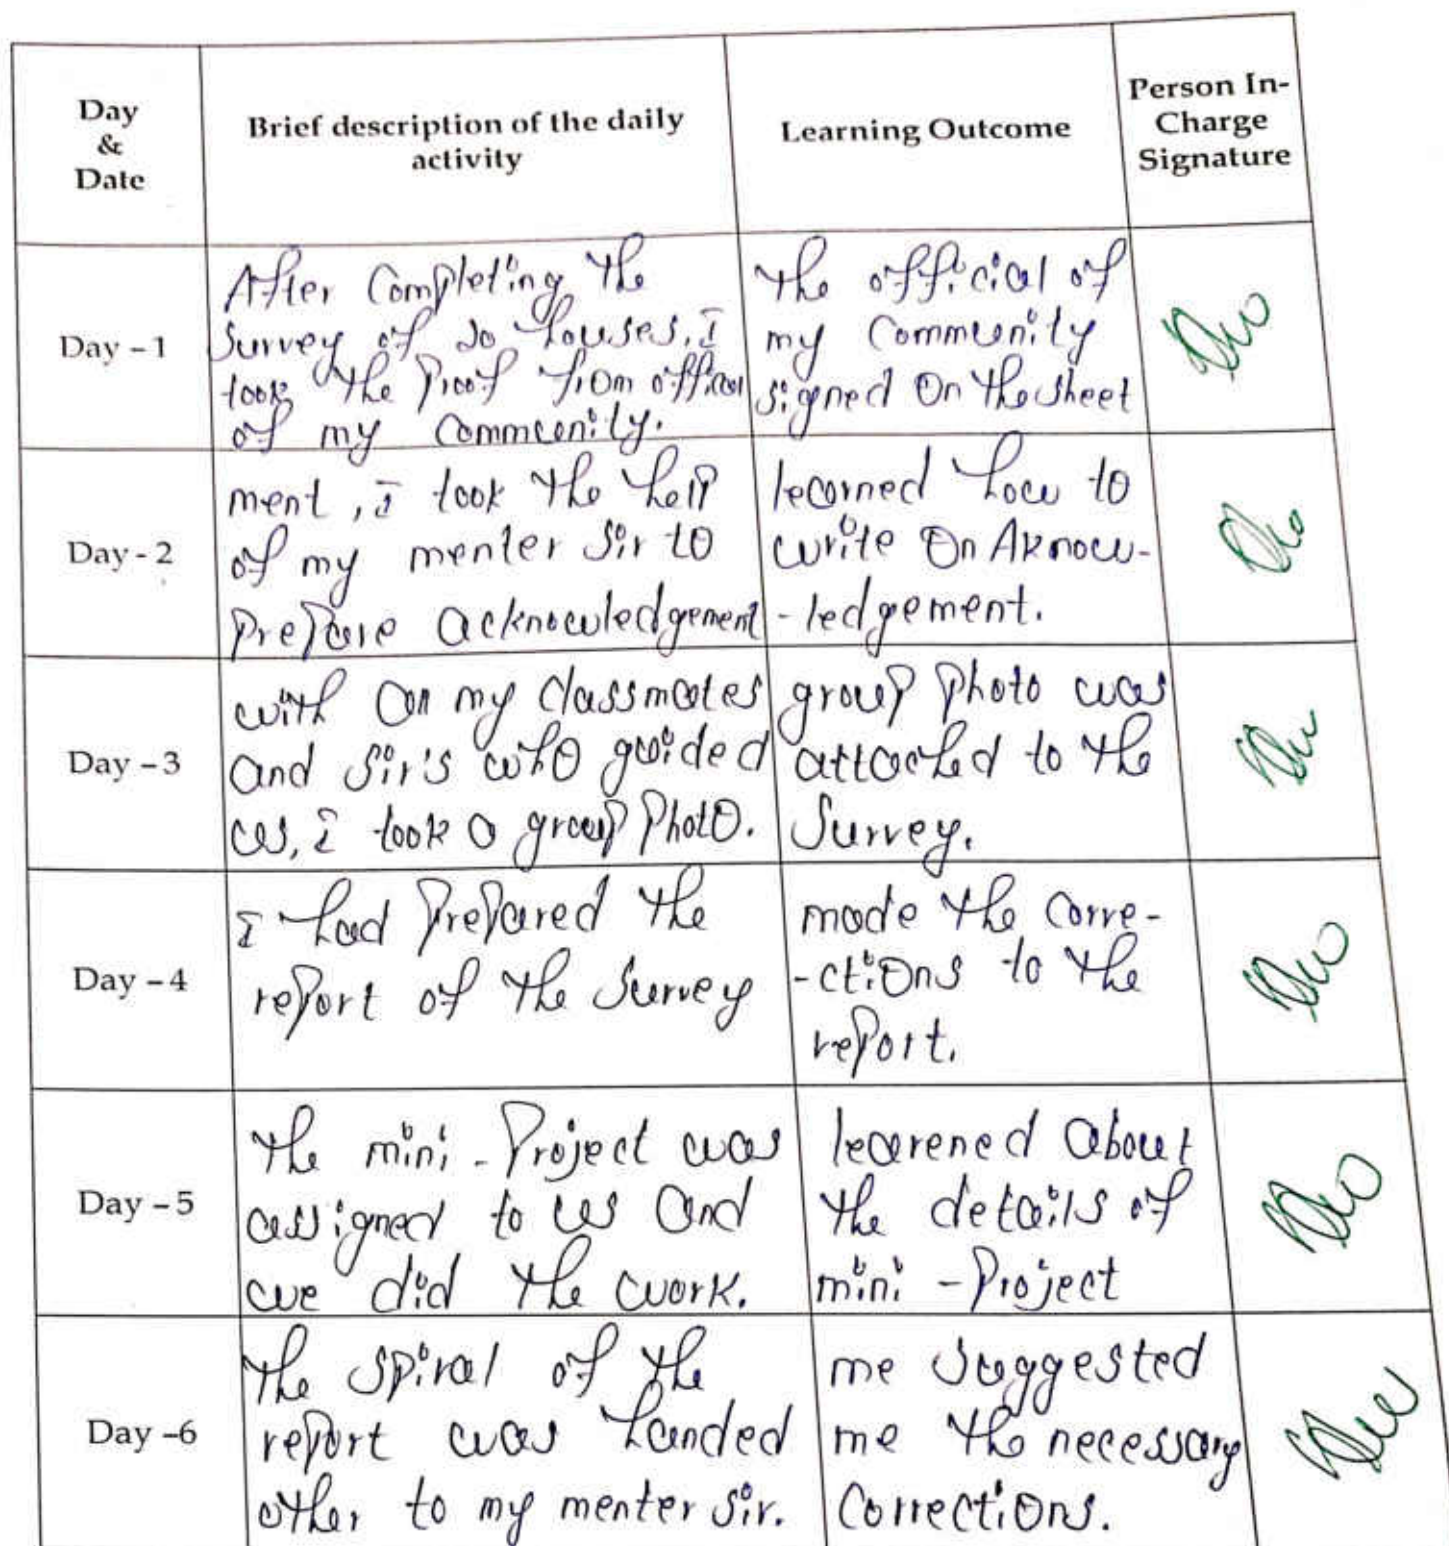 Day
&
Date
Brief description of the daily
activity
Learning Outcome
Person In-
Charge
Signature
Day – 1
After Completing the
Survey of 20 houses, i
took the Proof from offical
of my Community.
the official of
my Community
signed On the sheet
Day - 2
ment, i took the help
of my menter Sir to
Prepare acknowledgement
learned how to
write On Aknow-
-ledgement.
Day – 3
with all my classmates
and Sir's who guided
us, i took a group Photo.
group Photo was
attached to the
Survey.
Day – 4
i had Prepared the
report of the Survey
made the corre-
-ctions to the
report.
Day – 5
the mini - Project was
assigned to us and
we did the work.
learened about
the details of
mini - Project
Day –6
the spiral of the
report was handed
other to my menter sir.
me Suggested
me the necessary
Corrections.